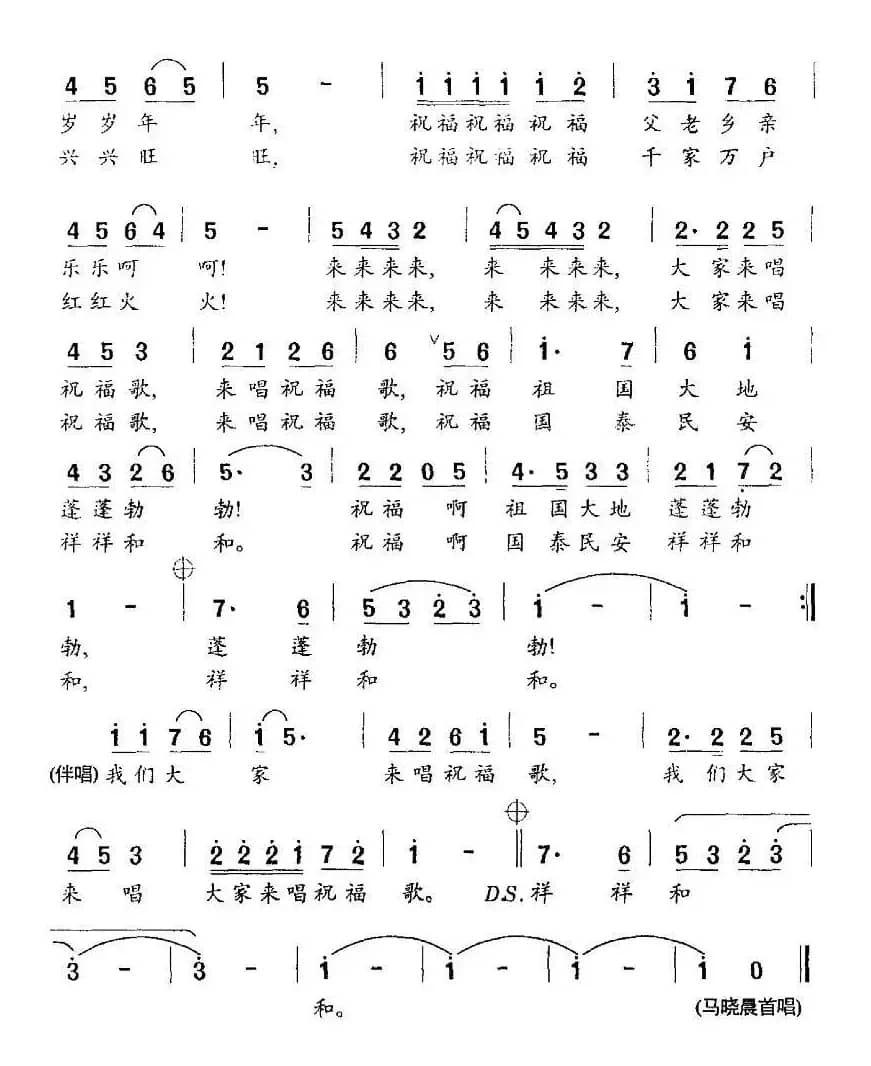 4 5 6 5 | 5 - | i i i i i 2 | 3 i 7 6 |
岁岁年 年, 祝福祝福祝福 父老乡亲
兴兴旺 旺, 祝福祝福祝福 千家万户
4 5 6 4 | 5 - | 5 4 3 2 | 4 5 4 3 2 | 2· 2 2 5 |
乐乐呵 呵! 来来来来, 来 来来来, 大家来唱
红红火 火! 来来来来, 来 来来来, 大家来唱
4 5 3 | 2 1 2 6 | 6 ∨ 5 6 | i· 7 | 6 i |
祝福歌, 来唱祝福 歌, 祝福 祖 国 大 地
祝福歌, 来唱祝福 歌, 祝福 国 泰 民 安
4 3 2 6 | 5· 3 | 2 2 0 5 | 4· 5 3 3 | 2 1 7 2 |
蓬蓬勃 勃! 祝福 啊 祖国大地 蓬蓬勃
祥祥和 和。 祝福 啊 国泰民安 祥祥和
1 - | 7· 6 | 5 3 2 3 | i - | i - :||
勃, 蓬 蓬 勃 勃!
和, 祥 祥 和 和。
i i 7 6 | i 5· | 4 2 6 i | 5 - | 2· 2 2 5 |
(伴唱) 我们大 家 来唱祝福 歌, 我们大家
4 5 3 | 2 2 2 i 7 2 | i - || 7· 6 | 5 3 2 3 |
来 唱 大家来唱祝福 歌。 D.S. 祥 祥 和
3 - | 3 - | i - | i - | i - | i 0 ||
和。 (马晓晨首唱)